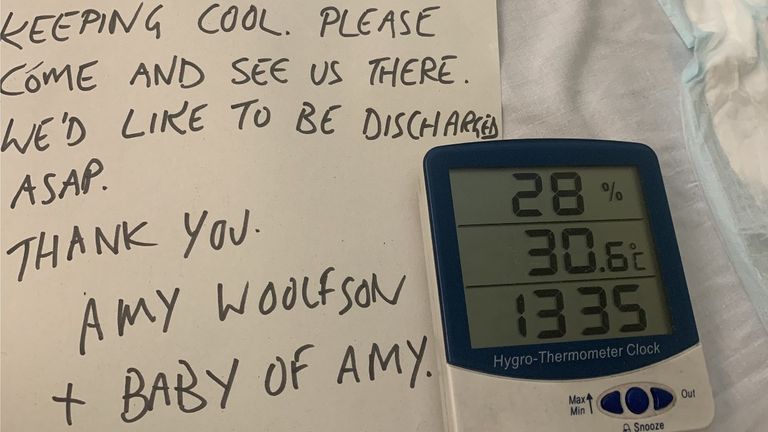 KEEPING COOL. PLEASE
COME AND SEE US THERE.
WE'D LIKE TO BE DISCHARGED
ASAP.
THANK YOU.
AMY WOOLFSON
+ BABY OF AMY.
28 %
30.6°C
1335
Hygro-Thermometer Clock
Max
Min
Out
Snooze